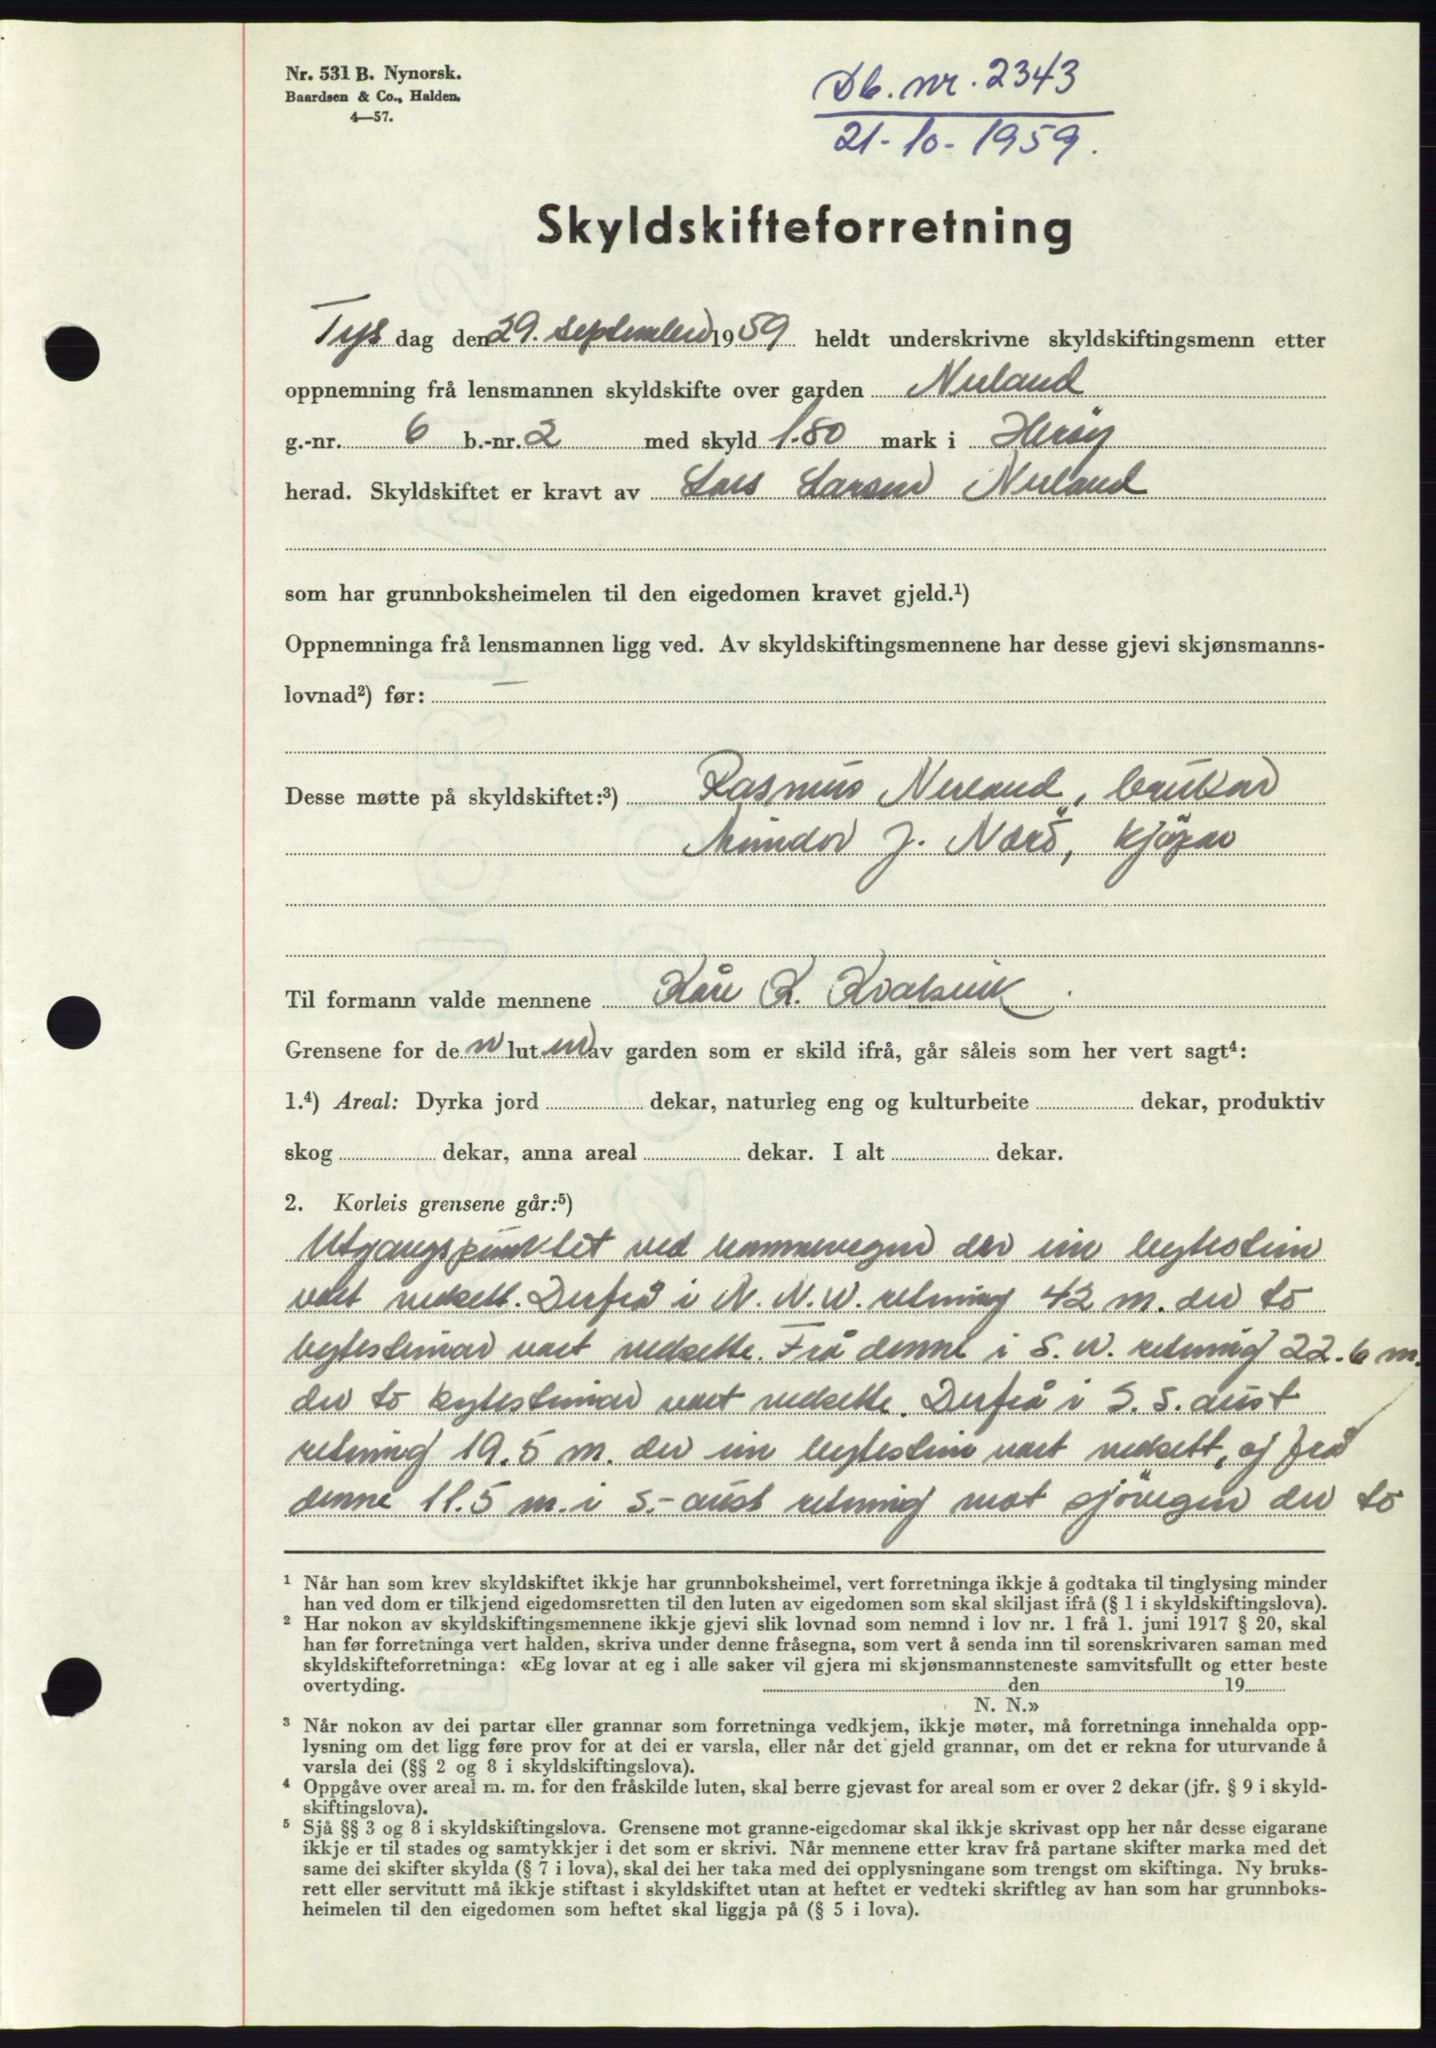 Nr. 531 B. Nynorsk.
Baardsen & Co., Halden.
4—57.
Db. nr. 2343
21-10-1959.
Skyldskifteforretning
Tys dag den 29. september 1959 heldt underskrivne skyldskiftingsmenn etter
oppnemning frå lensmannen skyldskifte over garden Nerland
g.-nr. 6 b.-nr. 2 med skyld 1.80 mark i Herøy
herad. Skyldskiftet er kravt av Lars Larsen Nerland
som har grunnboksheimelen til den eigedomen kravet gjeld.¹)
Oppnemninga frå lensmannen ligg ved. Av skyldskiftingsmennene har desse gjevi skjønsmanns-
lovnad²) før: —
Desse møtte på skyldskiftet:³) Rasmus Nerland, brukar
Mindor J. Nærö, kjøpar
Til formann valde mennene Kåre K. Kvalsvik.
Grensene for den luten av garden som er skild ifrå, går såleis som her vert sagt⁴:
1.⁴) Areal: Dyrka jord dekar, naturleg eng og kulturbeite dekar, produktiv
skog dekar, anna areal dekar. I alt dekar.
2. Korleis grensene går:⁵)
Utgangspunktet ved heimevegen der ein bytestein
vart nedsett. Derfrå i N.N.W. retning 42 m. der to
bytesteinar vart nedsette. Frå denne i S.W. retning 22.6 m.
der to bytesteinar vart nedsette. Derfrå i S.S. aust
retning 19.5 m. der ein bytestein vart nedsett, og frå
denne 11.5 m. i S.-aust retning mot sjövegen der to
¹ Når han som krev skyldskiftet ikkje har grunnboksheimel, vert forretninga ikkje å godtaka til tinglysing minder
han ved dom er tilkjend eigedomsretten til den luten av eigedomen som skal skiljast ifrå (§ 1 i skyldskiftingslova).
² Har nokon av skyldskiftingsmennene ikkje gjevi slik lovnad som nemnd i lov nr. 1 frå 1. juni 1917 § 20, skal
han før forretninga vert halden, skriva under denne fråsegna, som vert å senda inn til sorenskrivaren saman med
skyldskifteforretninga: «Eg lovar at eg i alle saker vil gjera mi skjønsmannsteneste samvitsfullt og etter beste
overtyding. den 19
N. N.»
³ Når nokon av dei partar eller grannar som forretninga vedkjem, ikkje møter, må forretninga innehalda opp-
lysning om det ligg føre prov for at dei er varsla, eller når det gjeld grannar, om det er rekna for uturvande å
varsla dei (§§ 2 og 8 i skyldskiftingslova).
⁴ Oppgåve over areal m. m. for den fråskilde luten, skal berre gjevast for areal som er over 2 dekar (jfr. § 9 i skyld-
skiftingslova).
⁵ Sjå §§ 3 og 8 i skyldskiftingslova. Grensene mot granne-eigedomar skal ikkje skrivast opp her når desse eigarane
ikkje er til stades og samtykkjer i det som er skrivi. Når mennene etter krav frå partane skifter marka med det
same dei skifter skylda (§ 7 i lova), skal dei her taka med dei opplysningane som trengst om skiftinga. Ny bruks-
rett eller servitutt må ikkje stiftast i skyldskiftet utan at heftet er vedteki skriftleg av han som har grunnboks-
heimelen til den eigedomen som heftet skal liggja på (§ 5 i lova).